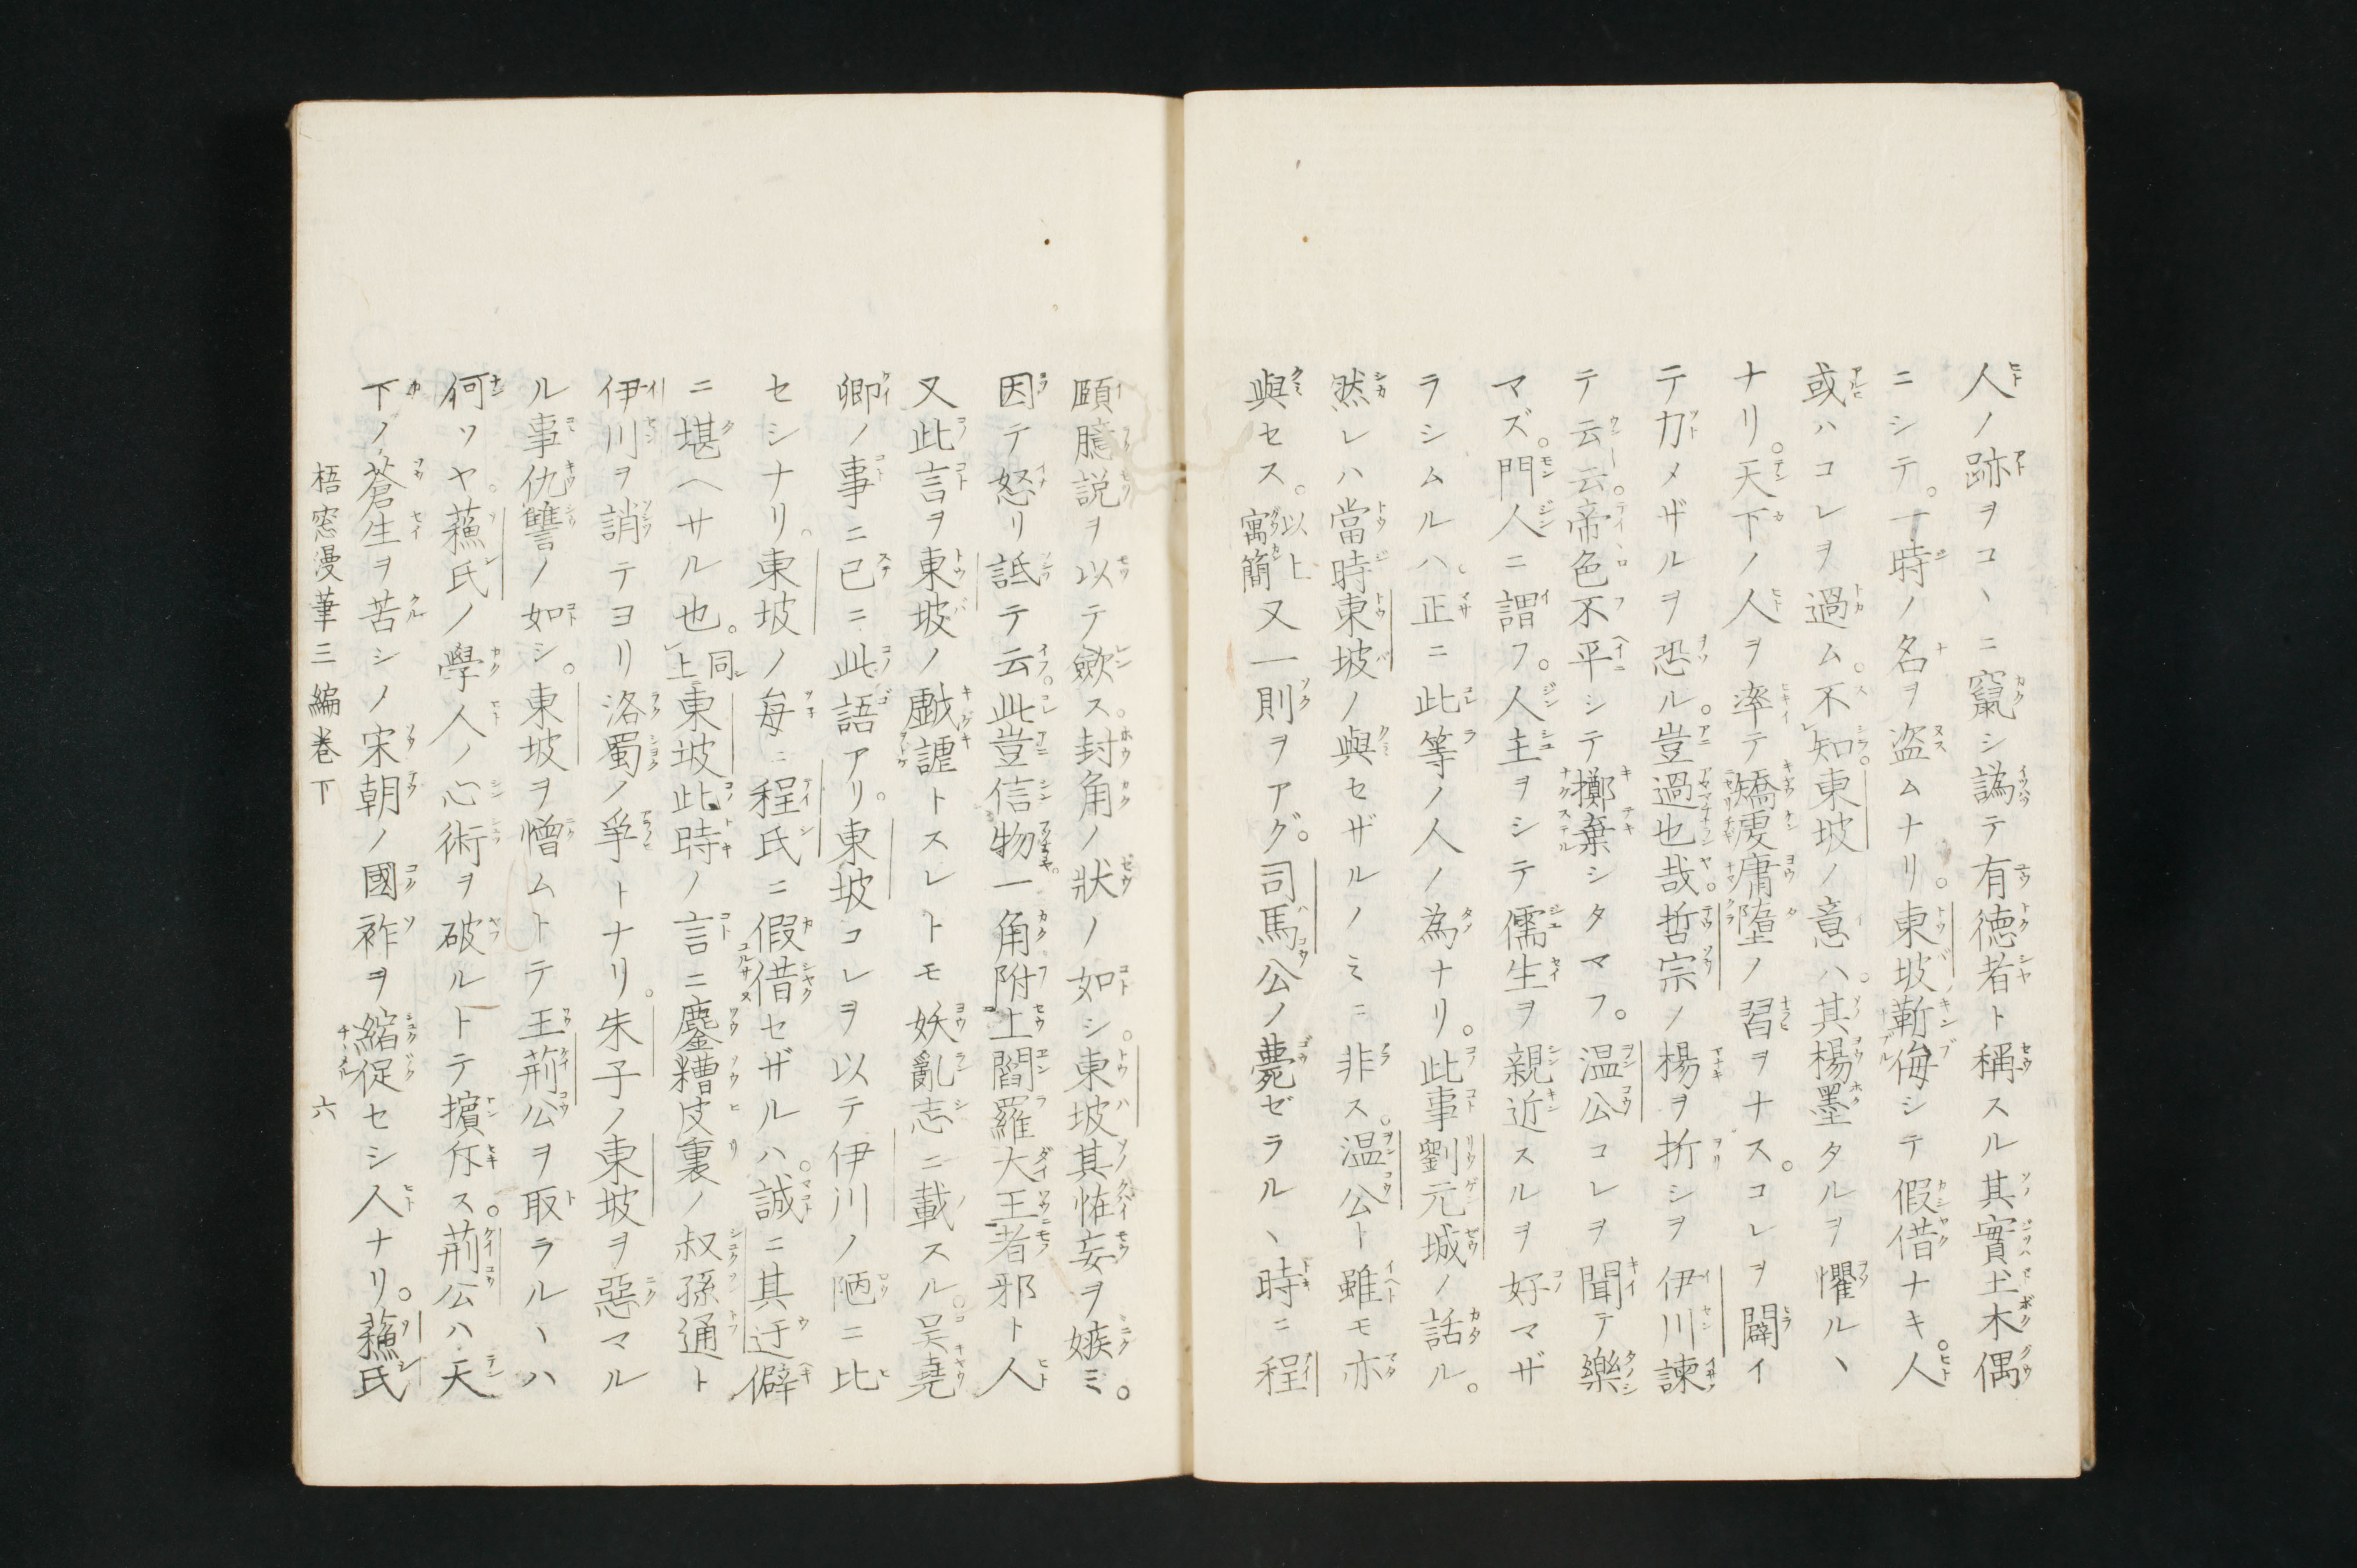 人ノ跡ヲコヽニ竄シ譌テ有徳者ト稱スル其實土木偶
ニシテ。一時ノ名ヲ盗ムナリ。東坡靳侮シテ假借ナキ。人
或ハコレヲ過ム。不知。東坡ノ意ハ。其楊墨タルヲ懼ルヽ
ナリ。天下ノ人ヲ率テ矯虔庸墮ノ習ヲナス。コレヲ闢イ
テ力メザルヲ恐ル。豈過也哉。哲宗ノ楊ヲ折シヲ伊川諫
テ云云。帝色不平シテ擲棄シタマフ。温公コレヲ聞テ樂
マズ。門人ニ謂フ。人主ヲシテ儒生ヲ親近スルヲ好マザ
ラシムルハ。正ニ此等ノ人ノ為ナリ。此事劉元城ノ話ル。
然レハ當時東坡ノ與セザルノミニ非ス。温公ト雖モ亦
與セス。以上寓簡又一則ヲアグ。司馬公ノ薨ゼラルヽ時ニ程
頤臆説ヲ以テ歛ス。封角ノ狀ノ如シ。東坡其怪妄ヲ嫉ミ。
因テ怒リ詆テ云。此豈信物一角附上閻羅大王者邪ト人
又此言ヲ東坡ノ戯謔トスレトモ妖亂志ニ載スル。呉堯
卿ノ事ニ已ニ此語アリ。東坡コレヲ以テ伊川ノ陋ニ比
セシナリ。東坡ノ每ニ程氏ニ假借セザルハ。誠ニ其迂僻
ニ堪ヘサル也。同上東坡此時ノ言ニ鏖糟陂裏ノ叔孫通ト
伊川ヲ誚テヨリ洛蜀ノ爭トナリ。朱子ノ東坡ヲ惡マル
ル事仇讐ノ如シ。東坡ヲ憎ムトテ王荊公ヲ取ラルヽハ
何ソヤ。蘓氏ノ學人ノ心術ヲ破ルトテ擯斥ス。荊公ハ天
下ノ蒼生ヲ苦シノ宋朝ノ國祚ヲ縮促セシ人ナリ。蘓氏
梧窓漫筆三編巻下 六